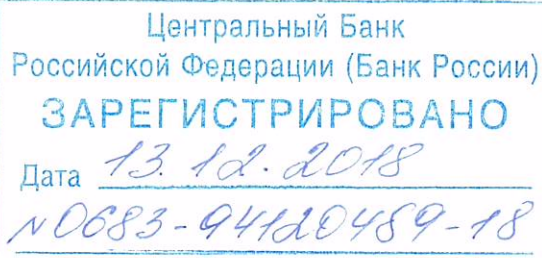 Центральный Банк
Российской Федерации (Банк России)
ЗАРЕГИСТРИРОВАНО
Дата 13.12.2018
N0683-94120489-18